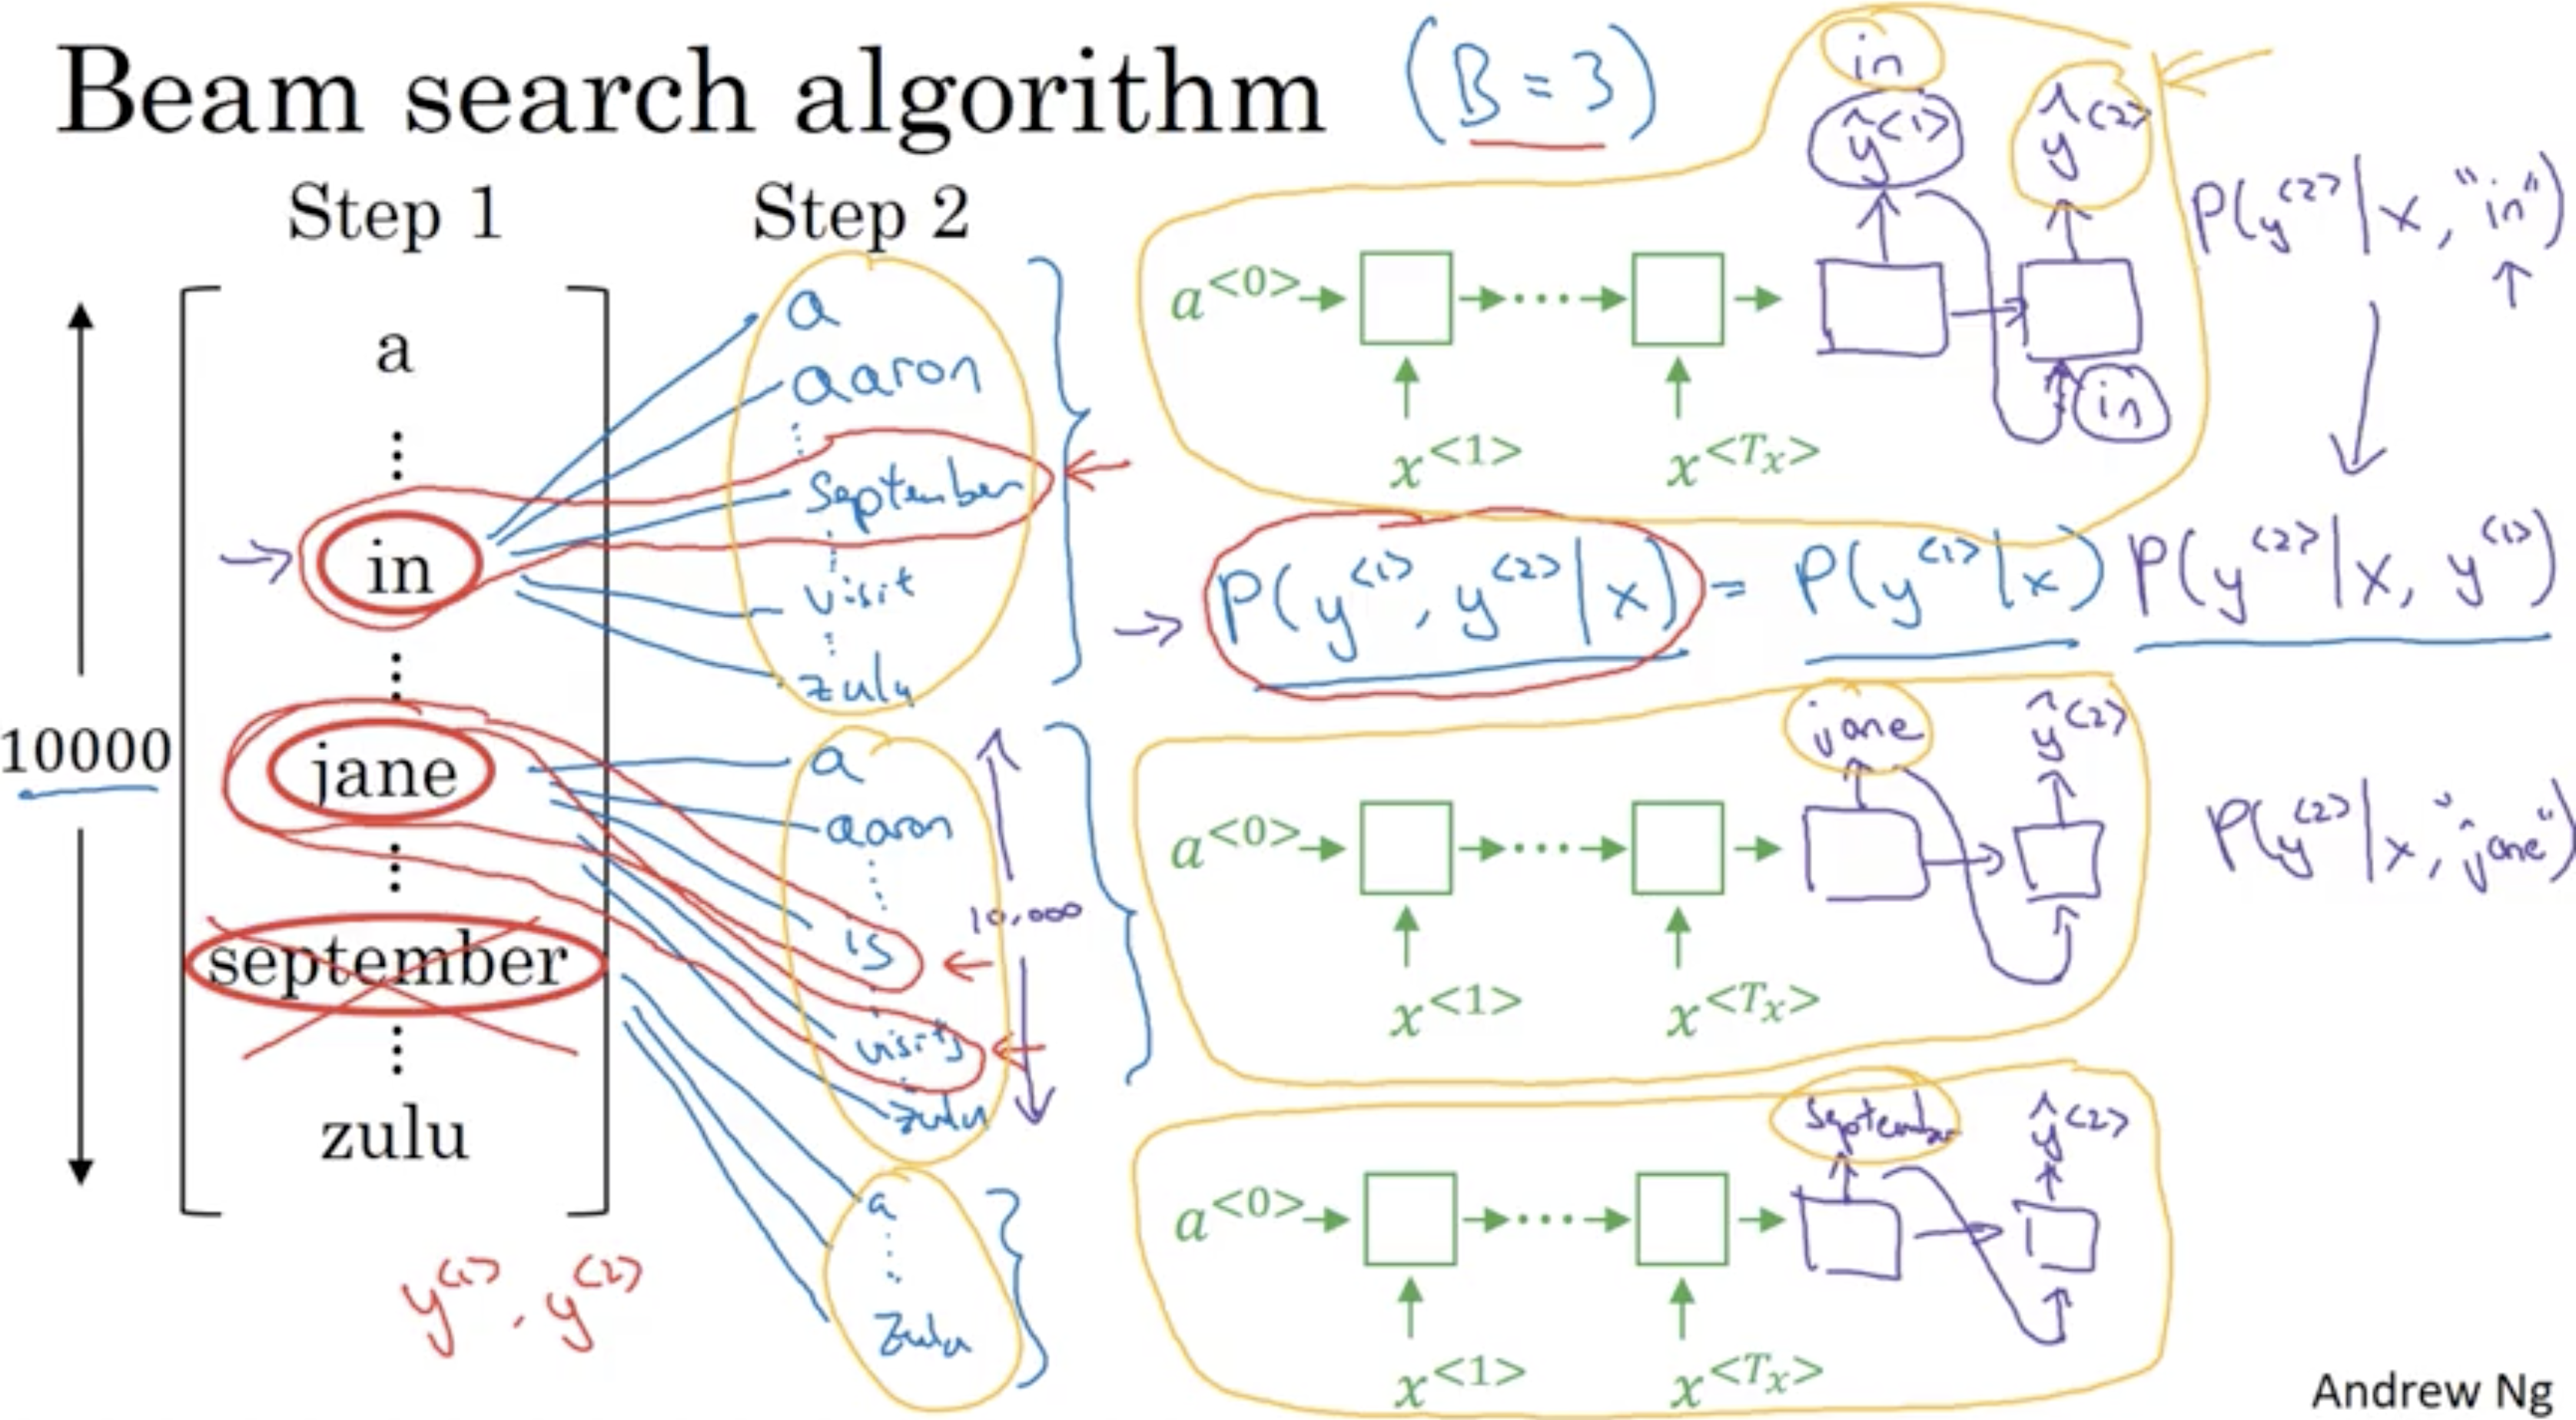 Beam search algorithm (B = 3)
Step 1
a
⋮
in
⋮
jane
⋮
september
⋮
zulu
10000
y<1>, y<2>
Step 2
a
aaron
⋮
september
⋮
visit
⋮
zulu
a
aaron
⋮
is
⋮
visits
⋮
zulu
10,000
a
⋮
zulu
in
ŷ<1> ŷ<2>
a<0> ... 
in
x<1> x<Tx>
P(y<2>|x, "in")
P(y<1>, y<2>|x) = P(y<1>|x) P(y<2>|x, y<1>)
jane ŷ<2>
a<0> ...
x<1> x<Tx>
P(y<2>|x, "jane")
september ŷ<2>
a<0> ...
x<1> x<Tx>
Andrew Ng